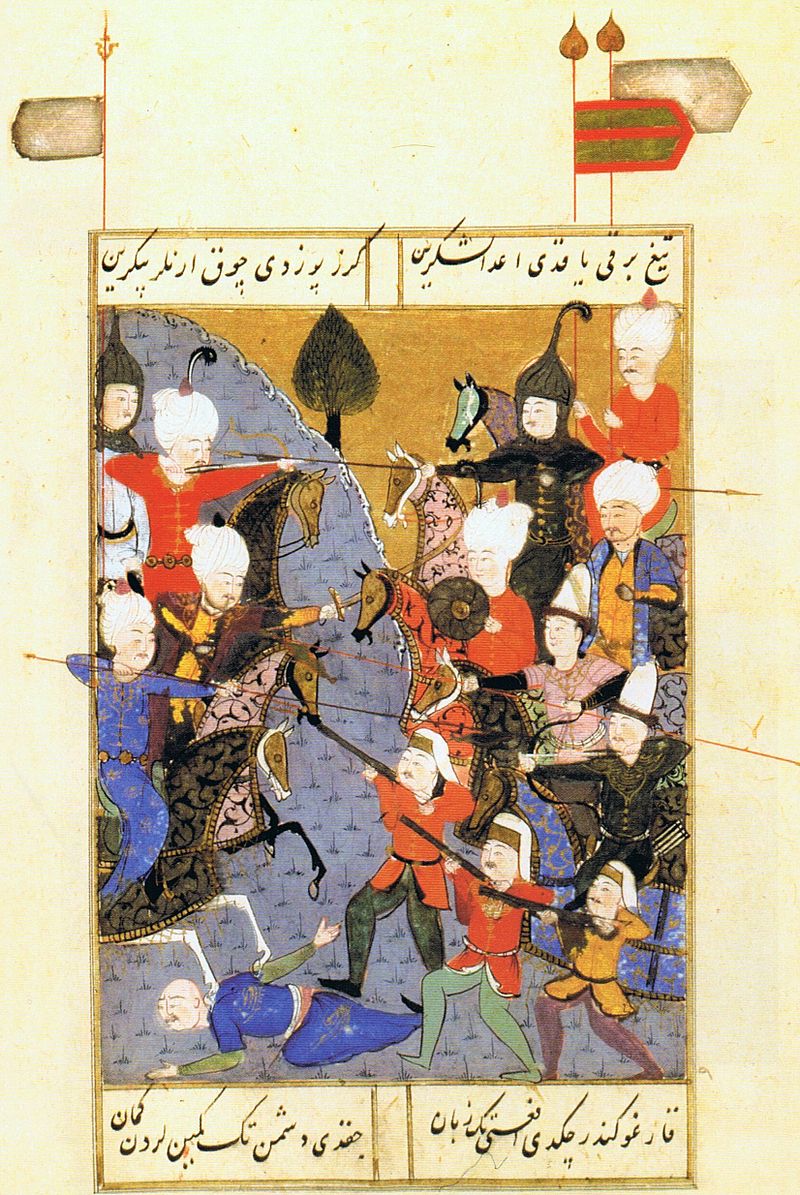 تیغ برقی یاقدی اعدا لشکرین
کرز بوزدی چوق ارنلر پیکرین
قارغو کندر چکدی افعی تک زبان
چقدی دشمن تک کمین لردن کمان